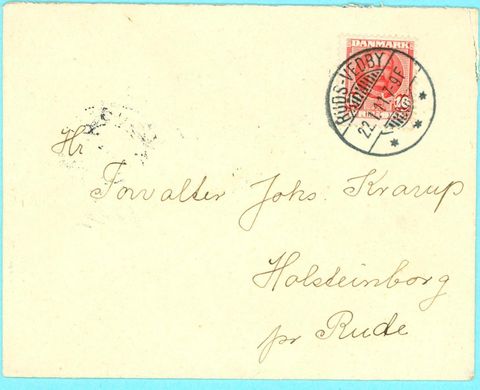 DANMARK
10
RUDS-VEDBY
22.1.11.7-9F
Hr
Forvalter Johs. Krarup
Holsteinborg
pr Rude